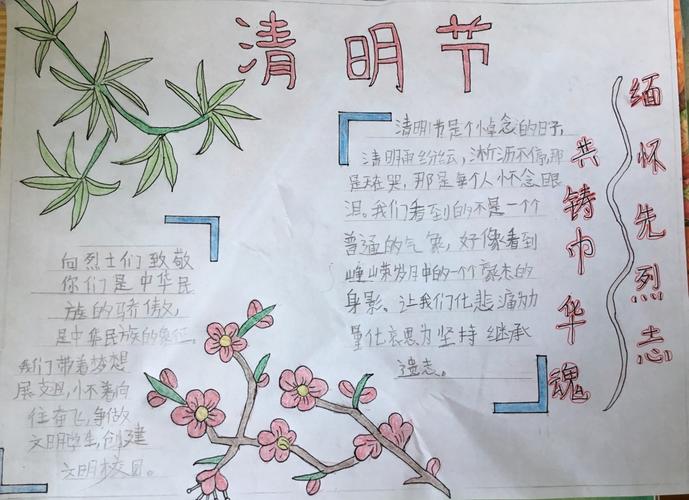 清明节
缅怀先烈志
共铸巾华魂
清明节是个悼念的日子,
清明雨纷纭,淅沥不停,那
是在哭,那是每个人怀念眼
泪。我们看到的不是一个
普通的气象,好像看到
峥嵘岁月中的一个个
身影。让我们化悲痛为力
量化哀思为坚持继承
遗志。
向烈士们致敬
你们是中华民
族的骄傲,
是中华民族的象征,
我们带着梦想
展支翅,怀着向
往奋飞,争做
文明学生,创建
文明校园。